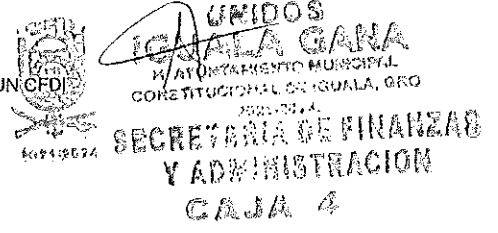 UNIDOS
IGUALA GANA
H. AYUNTAMIENTO MUNICIPAL
CONSTITUCIONAL DE IGUALA, GRO
UN CFDI
SECRETARIA DE FINANZAS
Y ADMINISTRACION
CAJA 4